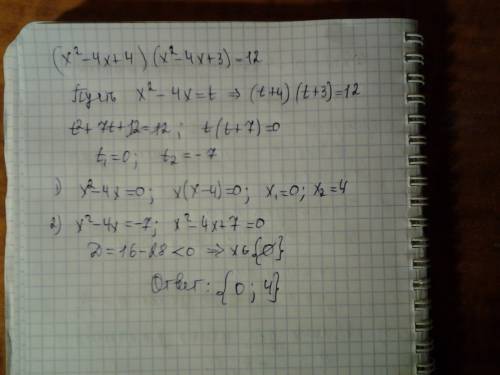 (x²-4x+4)(x²-4x+3)=12
Пусть x²-4x=t ⇒ (t+4)(t+3)=12
t²+7t+12=12; t(t+7)=0
t₁=0; t₂=-7
1) x²-4x=0; x(x-4)=0; x₁=0; x₂=4
2) x²-4x=-7; x²-4x+7=0
D=16-28<0 ⇒ x∈{∅}
Ответ: {0; 4}